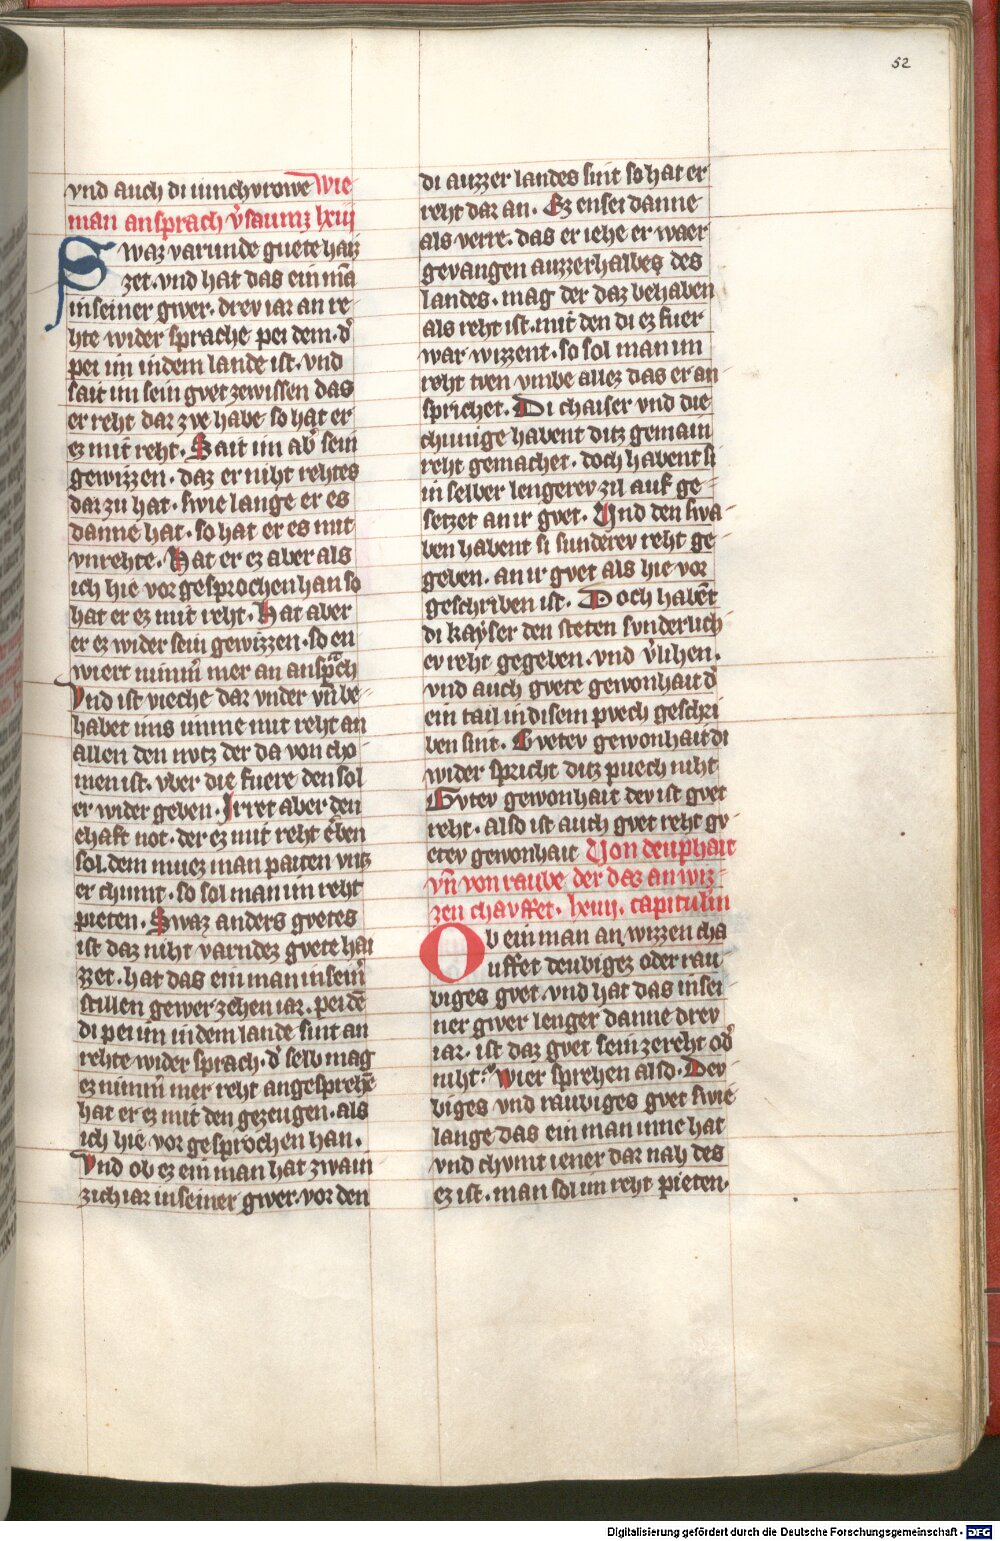 52
vnd auch di iunchvrowe Wie
man ansprach v̓saumz lxiij
Swaz varunde guete haiz
zet. vnd hat das ein mā
in seiner gwer. drev iar an re
hte wider sprache pei dem. d̓
pei im in dem lande ist. vnd
sait im sein gvet zewissen das
er reht dar zve habe so hat er
ez mit reht. Sait im ab̓ sein
gewizzen. daz er niht rehtes
dar zu hat. swie lange er es
danne hat. so hat er es mit
vnrehte. Hat er ez aber als
ich hie vor gesprochen han so
hat er ez mit reht. Hat aber
er ez wider sein gewizzen. so en
wiert nimm̄ mer an anspͣch
Vnd ist vieche dar vnder vn̄ be-
habet ims inne mit reht an
allen den nvtz der da von cho
men ist. vber die fuere den sol
er wider geben. Irret aber den
ehaft not. der ez mit reht ēben
sol. dem muez man paiten vntz
er chumt. so sol man im reht
pieten. Swaz anders gvetes
ist daz niht varndez gvete hai
zzet. hat das ein man in sein̓
stillen gewer zehen iar. pei dē
di pei im in dem lande sint an
rehte wider sprach. d̓ selb mag
ez nimm̄ mer reht angesprehē
hat er ez mit den gezeugen. als
ich hie vor gesprochen han.
Vnd ob ez ein man hat zwain
zich iar in seiner gwer. vor den
di auzzer landes sint so hat er
reht dar an. Ez en sei danne
als verre. das er iehe er waer
gevangen auzzerhalbes des
landes. mag der daz behaben
als reht ist. mit den di ez fuer
war wizzent. so sol man im
reht tven vmbe allez das er an
sprichet. Di chaiser vnd die
chunige habent ditz gemain
reht gemachet. doch habent si
in selber lengerev zil auf ge-
setzet an ir gvet. Vnd den swa-
ben habent si sunderev reht ge-
geben. an ir gvet als hie vor
geschriben ist. Doch habēt
di kayser den steten svnderlich
ev reht gegeben. vnd v̓lihen.
vnd auch gvete gewonhait d̓
ein tail in disem pvech geschri
ben sint. Gvetev gewonhait di
wider spricht ditz puech niht
Gvtev gewonhait dev ist gvet
reht. also ist auch gvet reht gv-
etev gewonhait Von deuphait
vn̄ von raube der das an wiz-
zen chavffet. lxiiij. capitulūm
Ob ein man an wizzen cha
uffet deubigez oder rau
biges gvet. vnd hat das in sei-
ner gwer lenger danne drev
iar. ist daz gvet sein zereht od̓
niht. Wier sprehen also. Dev
biges vnd raubiges gvet swie
lange das ein man inne hat
vnd chvmt iener dar nah des
ez ist. man sol im reht pieten.
Digitalisierung gefördert durch die Deutsche Forschungsgemeinschaft - DFG